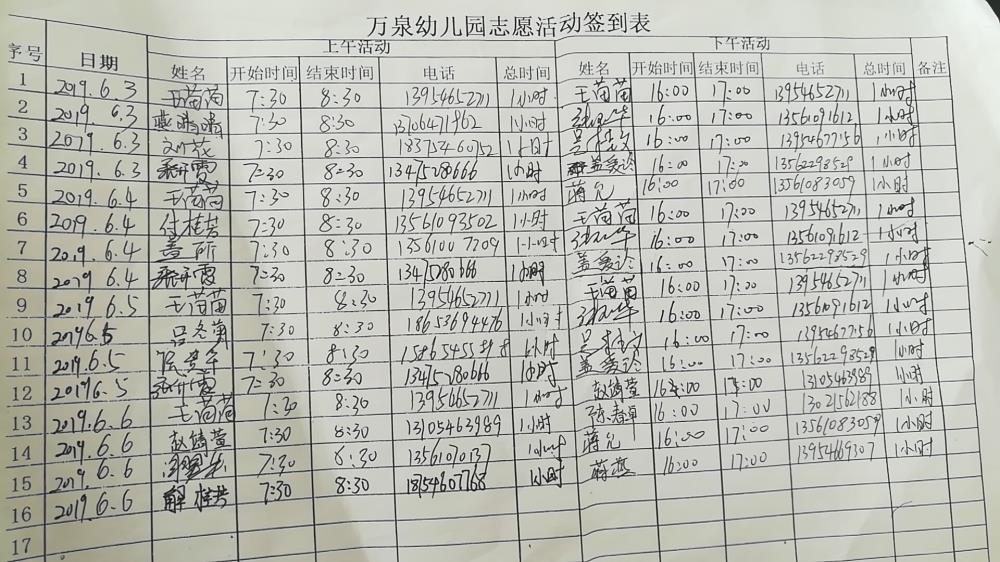 万泉幼儿园志愿活动签到表
上午活动 下午活动
序号 日期 姓名 开始时间 结束时间 电话 总时间 姓名 开始时间 结束时间 电话 总时间 备注
1 2019.6.3 王苗苗 7:30 8:30 13954652711 1小时 王苗苗 16:00 17:00 13954652711 1小时
2 2019 6.3 7:30 8:30 13706471962 1小时 16:00 17:00 13561091612 1小时
3 2019.6.3 7:30 8:30 18375460752 1小时 16:00 17:00 13954677156 1小时
4 2019.6.3 7=30 8=30 13475280666 1小时 16:00 17:00 13562298529 1小时
5 2019.6.4 王苗苗 7:30 8:30 13954652711 1小时 蒋允 16:00 17:00 13561083059 1小时
6 2019.6.4 付桂芸 7:30 8:30 13561093502 1小时 王苗苗 16:00 17:00 13954652711 1小时
7 2019.6.4 7:30 8:30 13561007709 1小时 16:00 17:00 13561091612 1小时
8 2019 6.4 7=30 8=30 13475280666 1小时 16:00 17:00 13562298529 1小时
9 2019.6.5 王苗苗 7:30 8:30 13954652711 1小时 王苗苗 16:00 17:00 13954652711 1小时
10 2019 6.5 7:30 8:30 18653694476 1小时 16:00 17:00 13561091612 1小时
11 2019.6.5 7:30 8:30 1小时 16:00 17:00 13954677156 1小时
12 2019 6.5 7=30 8=30 13475280666 1小时 16:00 17:00 13562298529 1小时
13 2019.6.6 王苗苗 7:30 8:30 13954652711 1小时 赵靖萱 16:00 17:00 13105463989 1小时
14 2019.6.6 赵靖萱 7:30 8:30 13105463989 1小时 陈春卓 16:00 17:00 13021562188 1小时
15 2019.6.6 7:30 8:30 13561070137 1小时 蒋允 16:00 17:00 13561083059 1小时
16 2019.6.6 解桂芸 7:30 8:30 18154607768 1小时 蒋燕 16:00 17:00 13954669307 1小时
17